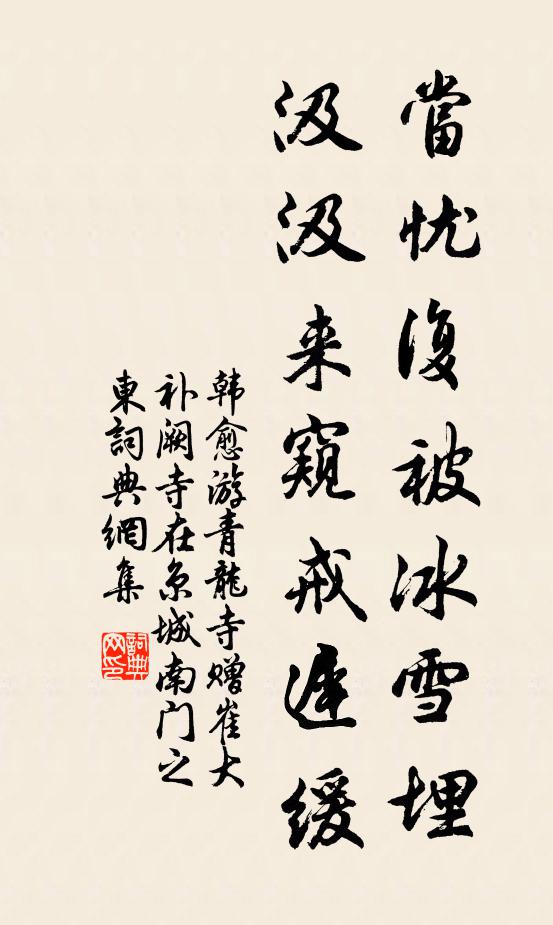 當忧復被冰雪埋
汲汲来窺戒遲缓
韩愈游青龍寺赠崔大
补阙寺在京城南门之
東詞典網集
詞典
网印